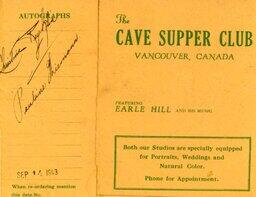 AUTOGRAPHS
Pauline
SEP 14 1943
When re-ordering mention
this date No.
The
CAVE SUPPER CLUB
VANCOUVER, CANADA
FEATURING
EARLE HILL AND HIS MUSIC
Both our Studios are specially equipped
for Portraits, Weddings and
Natural Color.
Phone for Appointment.